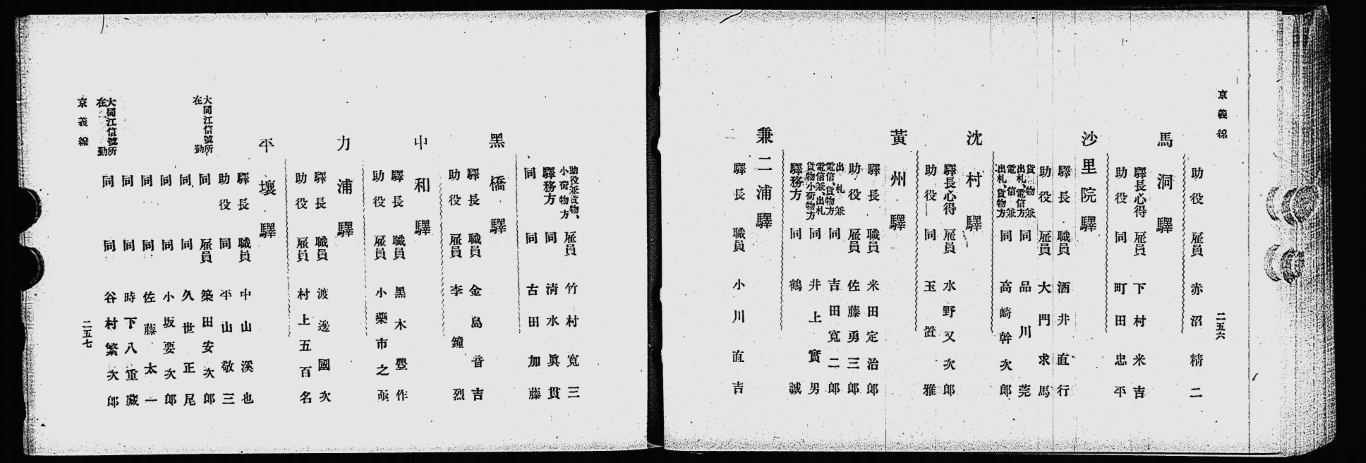 京義線
二五六
助役 雇員 赤沼精二
馬洞驛
驛長心得 雇員 下村米吉
助役 同 町田忠平
沙里院驛
驛長 職員 酒井直行
助役 雇員 大門求馬
貨物兼出札、電信方 同 品川莞
電信兼出札、貨物方 同 高崎幹次郎
沈村驛
驛長心得 雇員 水野又次郎
助役 同 玉置雅
黃州驛
驛長 職員 米田定治郎
助役 雇員 佐藤勇三郎
出札兼電信、貨物方 同 吉田寬二郎
電信兼出札貨物小荷物方 同 井上實男
驛務方 同 鶴誠
兼二浦驛
驛長 職員 小川直吉
助役兼貨物、小荷物方 雇員 竹村寬三
驛務方 同 清水眞貫
同 同 古田加藤
黑橋驛
驛長 職員 金島音吉
助役 雇員 李鐘烈
中和驛
驛長 職員 黑木豐作
助役 雇員 小榮市之
力浦驛
驛長 職員 渡邊國次
助役 雇員 村上五百名
平壤驛
驛長 職員 中山溪也
助役 同 平山敬三
大同江信號所在勤 同 雇員 築田安次郎
同 同 久世正尾
同 同 小坂要次郎
同 同 佐藤太一
同 同 時下八重藏
大同江信號所在勤 同 同 谷村繁次郎
京義線
二五七